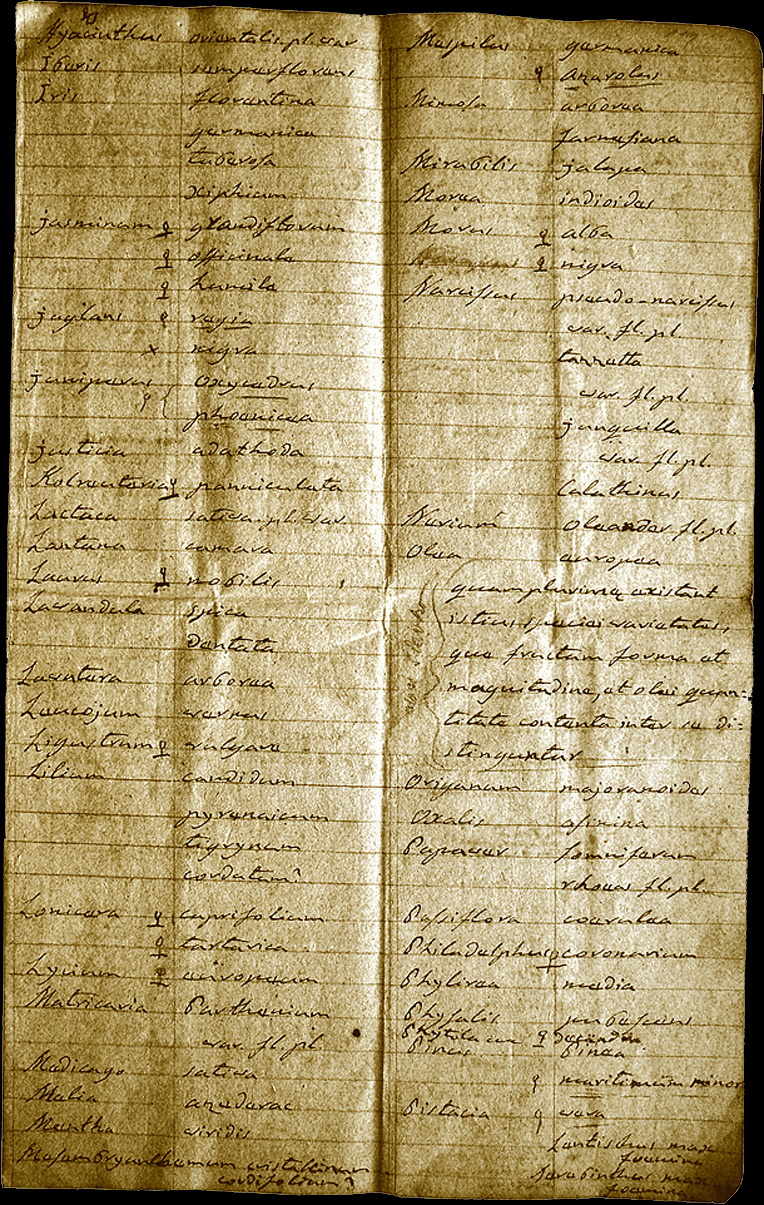 Hyacinthus orientalis. pl. var
Iberis semperflorens
Iris florentina
germanica
tuberosa
xiphium
jasminum ♀ grandiflorum
♀ officinale
♀ humile
juglans ♀ regia
× nigra
juniperus oxycedrus
♀ { phoenicea
justicia adathoda
Kolreuteria ♀ panniculata
Lactuca sativa. pl. var.
Lantana camara
Laurus ♀ nobilis
Lavandula spica
Dentata
Lavatera arborea
Leucojum vernus
Ligustrum ♀ vulgare
Lilium candidum
pyrenaicum
tigrynum
cordatum?
Lonicera ♀ caprifolium
♀ tartarica
Lycium ♀ europeum
Matricaria Parthenium
var. fl. pl.
Medicago sativa
Melia azedarac
Mentha viridis
Mesembryanthemum cristallinum
cordifolium?
Mespilus germanica
♀ anarolus
Mimosa arborea
farnesiana
Mirabilis jalapa
Morea indioides
Morus ♀ alba
♀ nigra
Narcissus pseudo-narcissus
var. fl. pl.
tazzetta
var. fl. pl.
junquilla
var. fl. pl.
Calathinus
Nerium oleander fl. pl.
Olea europea
quamplurimę existunt
istius speciei varietates,
que fructum forma et
magnitudine, et olei quan-:
titate contenta inter se di-:
stinguntur
Origanum majoranoides
Oxalis asinina
Papaver somniferum
rhoeas fl. pl.
Passiflora coerulea
Philadelphus ♀ coronarium
Phylirea media
Physalis pubescens
Phytolacca ♀ decandra
Pinus Pinea
♀ maritimum minor
Pistacia ♀ vera
Lentiscus mas
foemina
Terebinthus mas
foemina